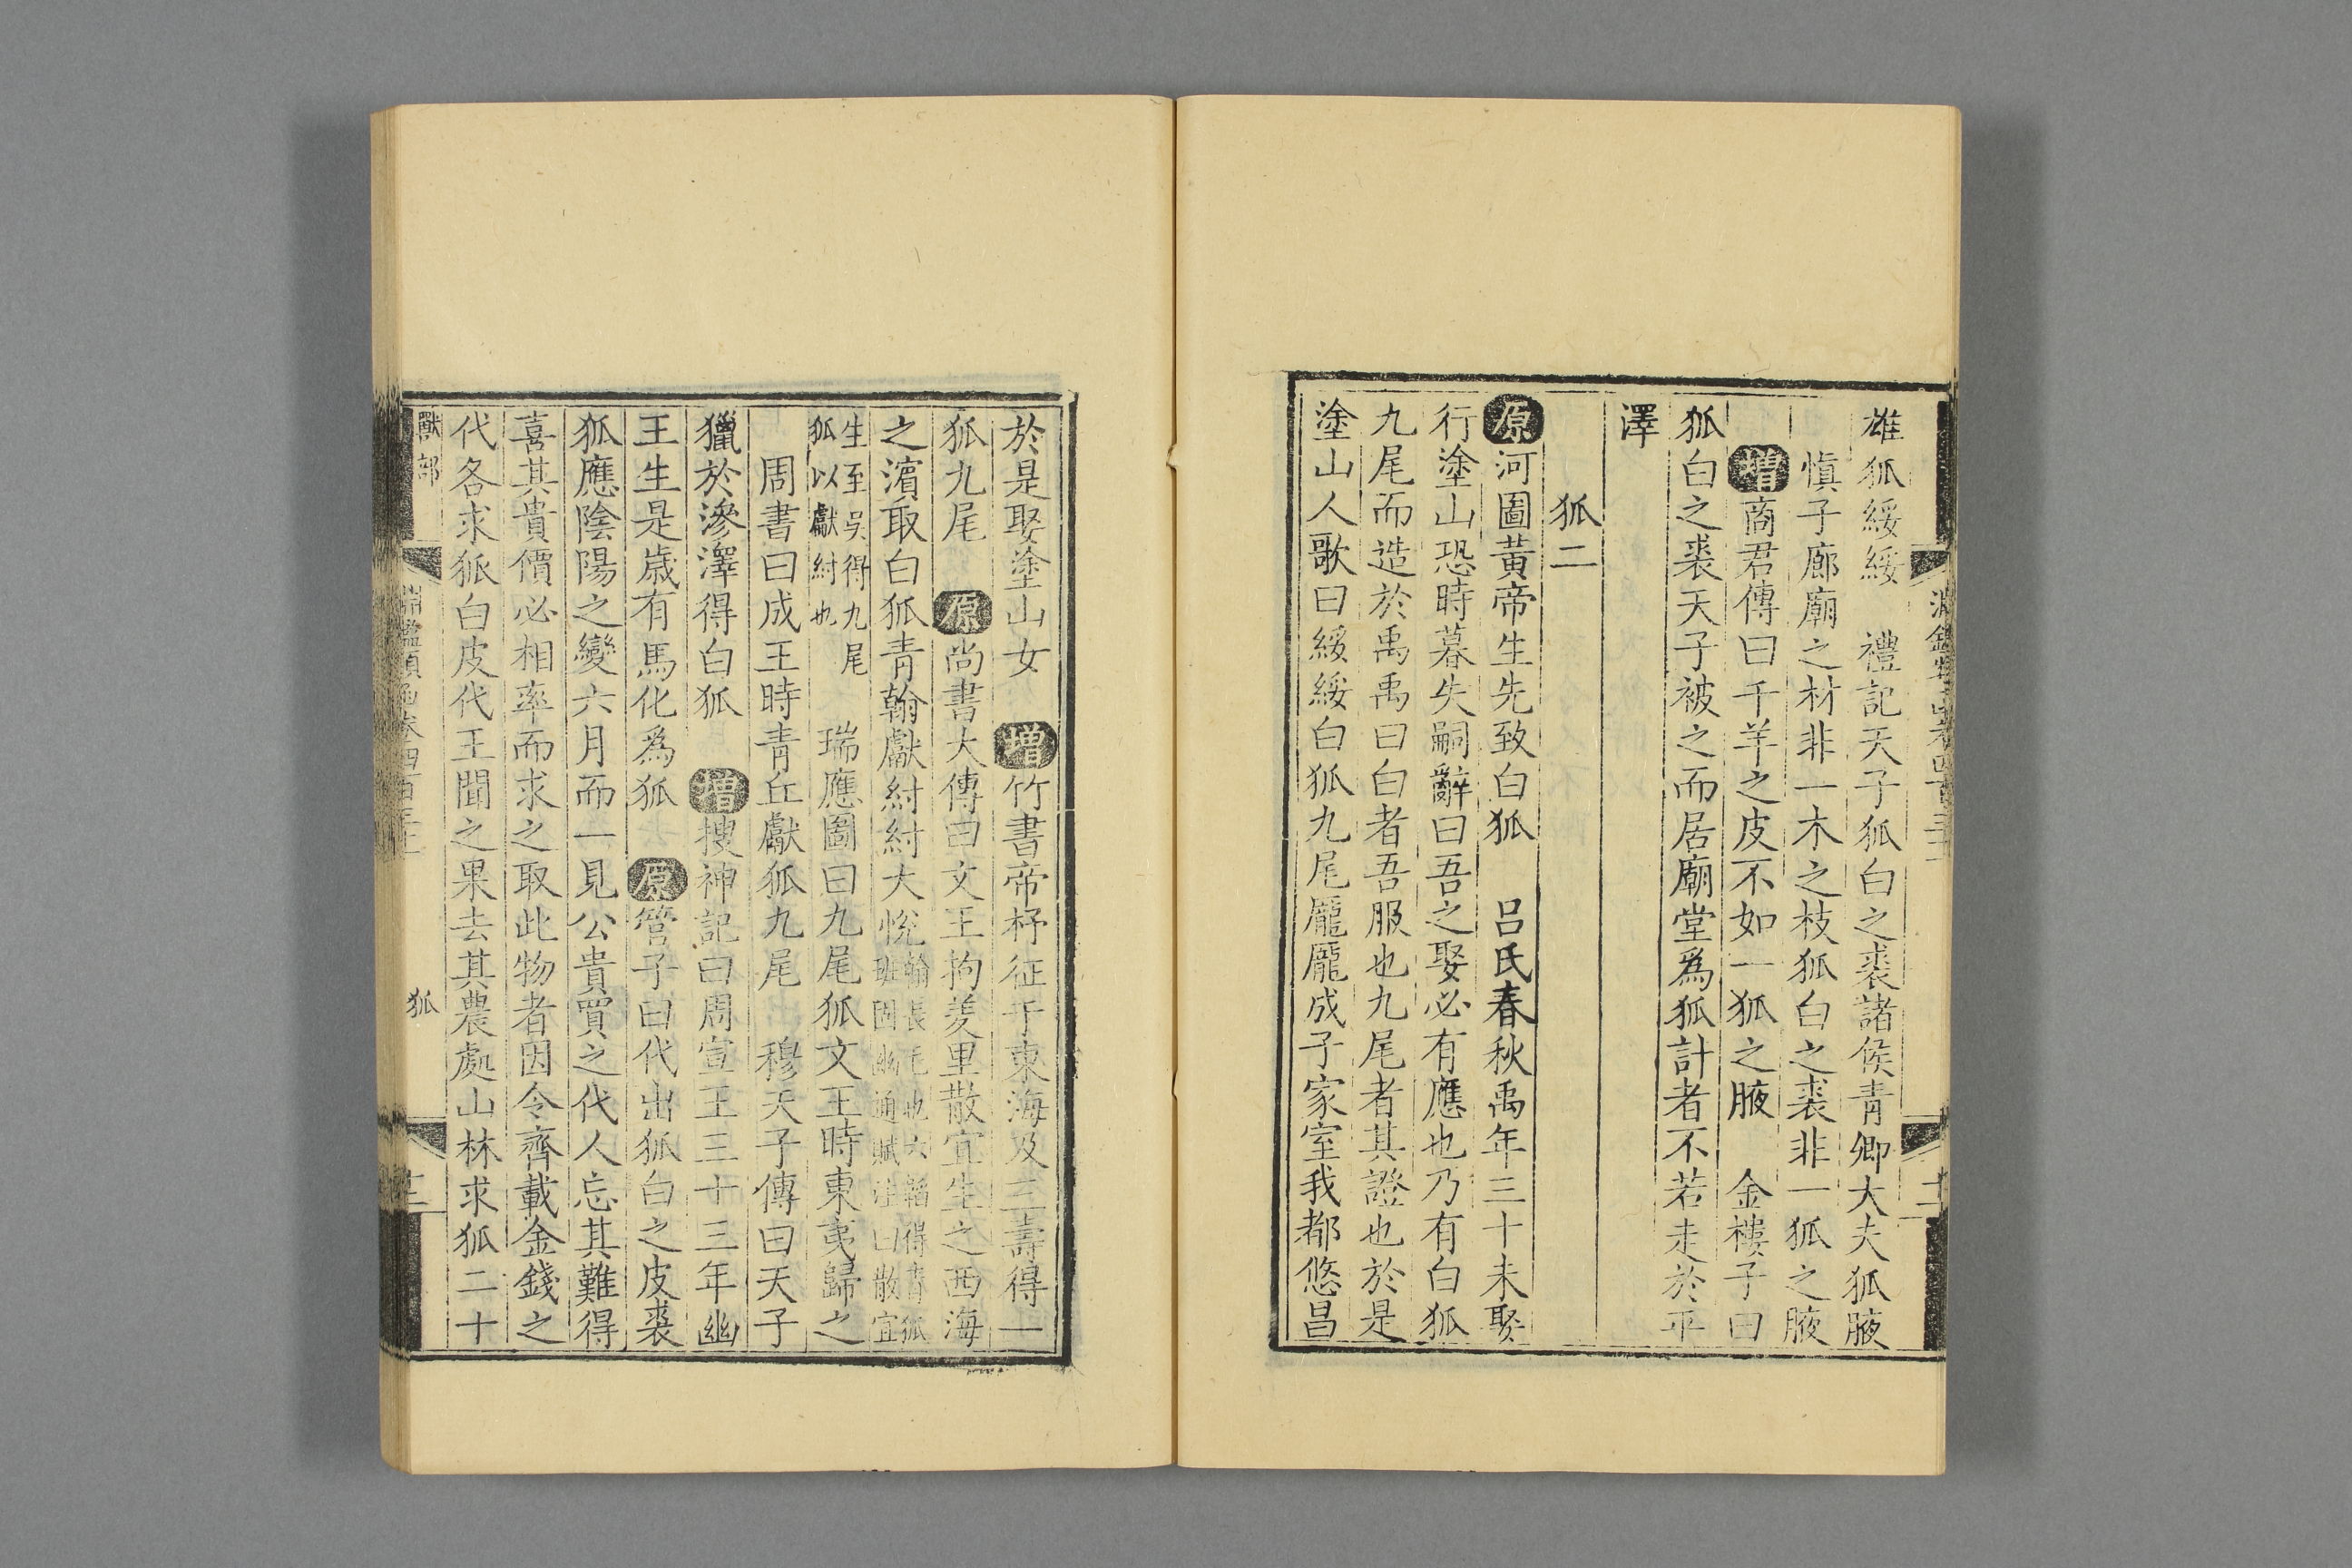 雄狐綏綏　禮記天子狐白之裘諸侯青卿大夫狐腋
慎子廊廟之材非一木之枝狐白之裘非一狐之腋
增商君傳曰千羊之皮不如一狐之腋　金樓子曰
狐白之裘天子被之而居廟堂爲狐計者不若走於平
澤
狐二
原河圖黃帝生先致白狐　呂氏春秋禹年三十未娶
行塗山恐時暮失嗣辭曰吾之娶必有應也乃有白狐
九尾而造於禹禹曰白者吾服也九尾者其證也於是
塗山人歌曰綏綏白狐九尾龐龐成子家室我都悠昌
於是娶塗山女　增竹書帝杼征于東海及三壽得一
狐九尾　原尚書大傳曰文王拘羑里散宜生之西海
之濵取白狐青翰獻紂紂大悅翰長毛也六韜得青狐
班固幽通賦注曰散宜
生至吳得九尾
狐以獻紂也
瑞應圖曰九尾狐文王時東夷歸之
周書曰成王時青丘獻狐九尾　穆天子傳曰天子
獵於滲澤得白狐　增搜神記曰周宣王三十三年幽
王生是歲有馬化爲狐　原管子曰代出狐白之皮裘
狐應陰陽之變六月而一見公貴買之代人忘其難得
喜其貴價必相率而求之取此物者因令齊載金錢之
代各求狐白皮代王聞之果去其農處山林求狐二十
獸部
狐